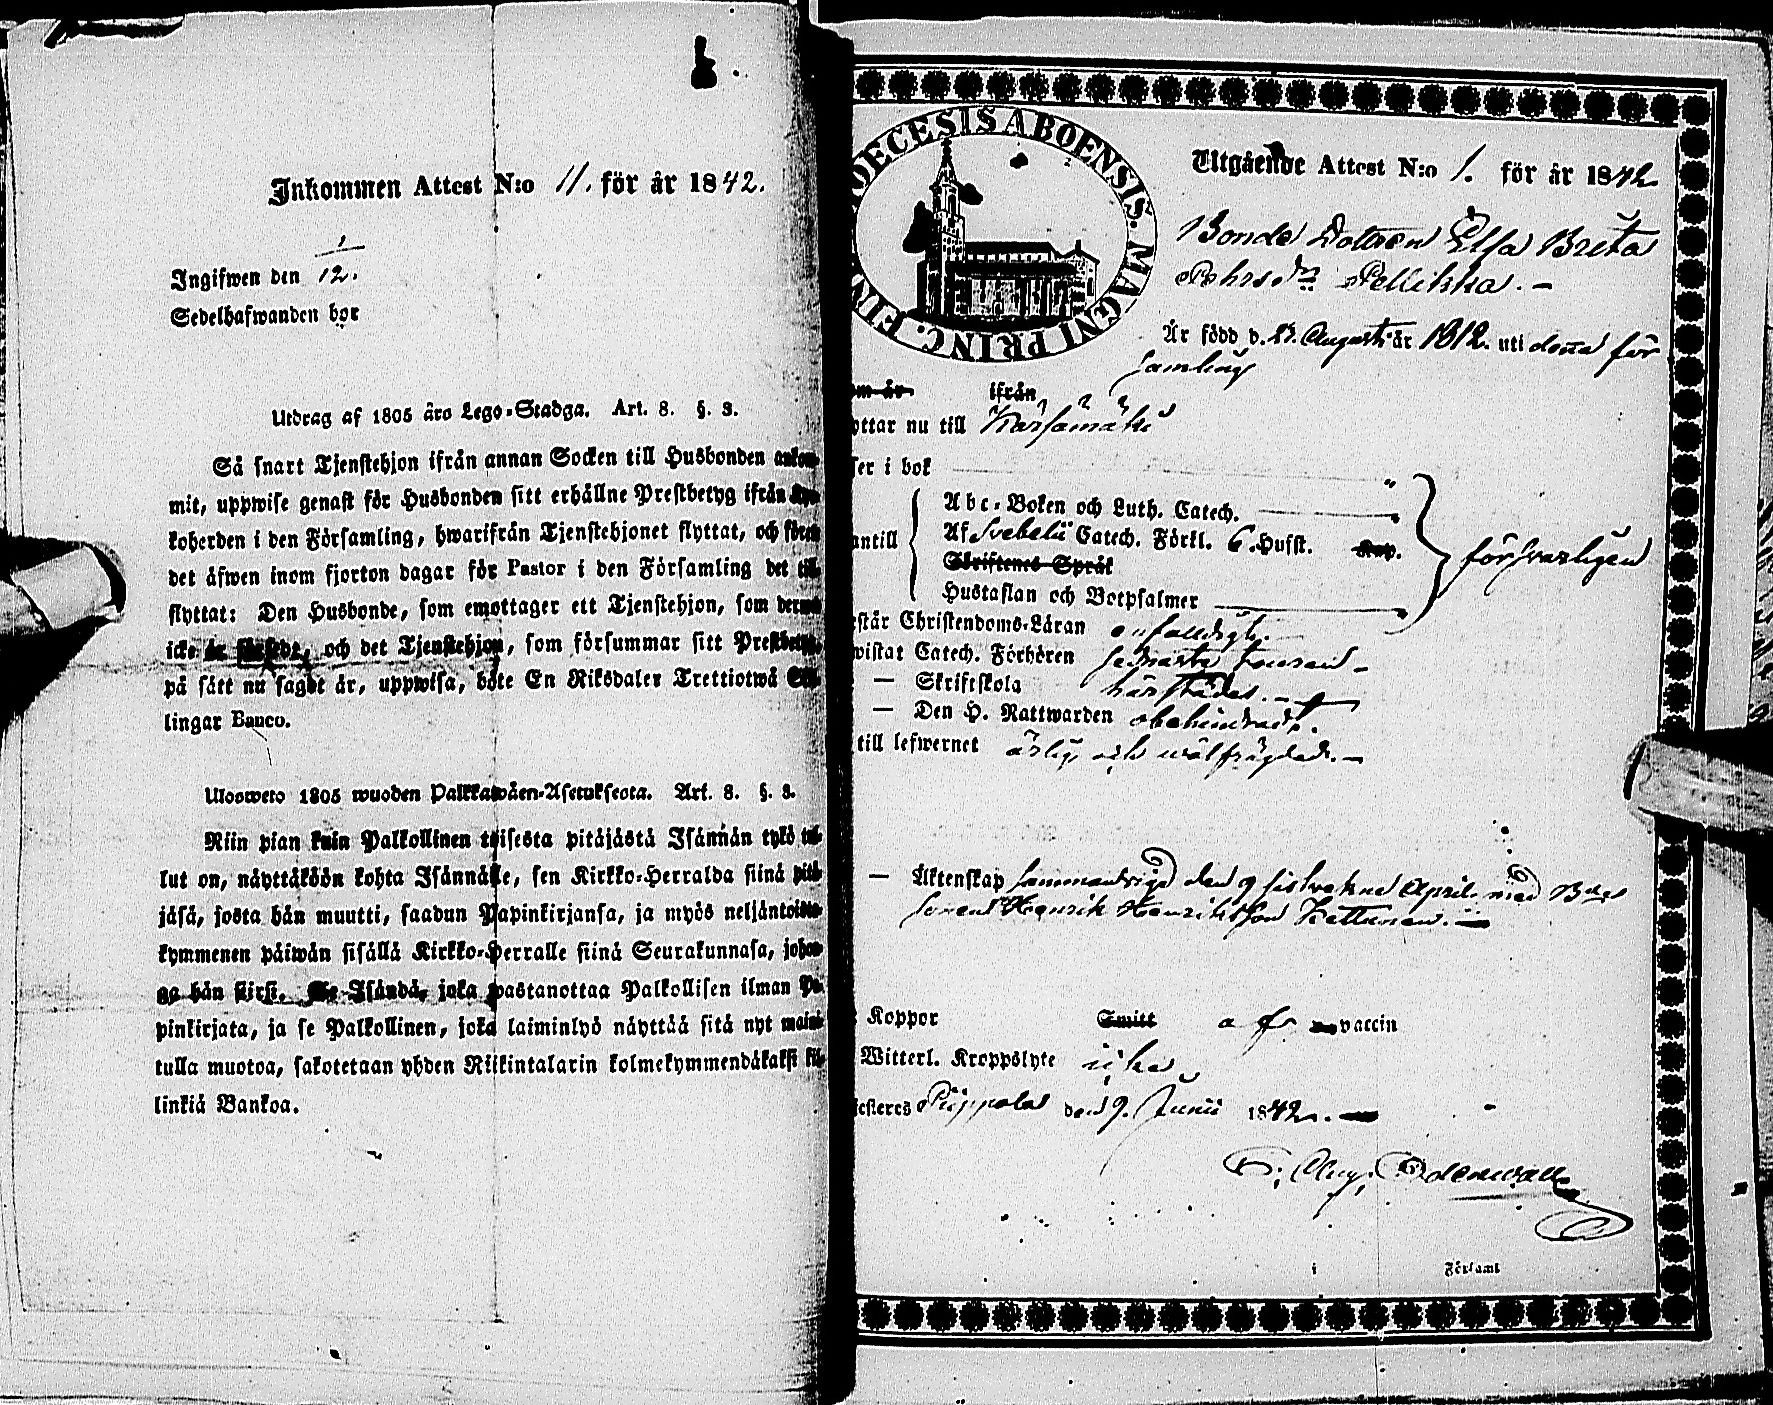 Inkommen Attest N:o 11. för år 1842.
Ingifwen den 12.
Sedelhafwanden bor
Utdrag af 1805 års Lego-Stadga. Art. 8. §. 3.
Så snart Tjenstehjon ifrån annan Socken till Husbonden ankom-
mit, uppwise genast för Husbonden sitt erhållne Prestbetyg ifrån Kyr-
koherden i den Församling, hwarifrån Tjenstehjonet flyttat, och förete
det äfwen inom fjorton dagar för Pastor i den Församling det till-
flyttat: Den Husbonde, som emottager ett Tjenstehjon, som dermed
icke är försedt, och det Tjenstehjon, som försummar sitt Prestbetyg,
på sätt nu sagdt är, uppwisa, böte En Riksdaler Trettiotwå Skil-
lingar Banco.
Ulosweto 1805 wuoden Palkkawäen-Asetuksesta. Art. 8. §. 3.
Niin pian kuin Palkollinen toisesta pitäjästä Isännän tykö tul-
lut on, näyttäköön kohta Isännälle, sen Kirkko-Herralda siinä pitä-
jäsä, josta hän muutti, saadun Papinkirjansa, ja myös neljäntoista-
kymmenen päiwän sisällä Kirkko-Herralle siinä Seurakunnasa, johon-
ga hän siirsi. Se Isändä, joka wastanottaa Palkollisen ilman Pa-
pinkirjata, ja se Palkollinen, joka laiminlyö näyttää sitä nyt maini-
tulla muotoa, sakotetaan yhden Riikintalarin kolmekymmendäkaksi kil-
linkiä Bankoa.
DIOECESIS ABOENSIS. MAGNI PRINC. FIN
Utgående Attest N:o 1. för år 1842
Bonde Dottren Elsa Breta
Pehrsdr Pellikka. -
Är född d. 27. Augusti år 1812. uti denna för
samling
om år ifrån
yttar nu till Kärsämäki
ser i bok
Abc-Boken och Luth. Catech.
antill Af Svebelii Catech. Förkl. 6. Hufst. Kap. försvarligen
Skriftenes Språk
Hustaflan och Botpsalmer
står Christendoms-Läran enfaldigt.
wistat Catech. Förhören sednaste
— Skriftskola härstädes. -
— Den H. Nattwarden obehindradt.
till lefwernet ärlig och wälfrägdad. -
— Äktenskap den 9 sistvekne April med Bde
sonen Henrik Henriksson Kattunen. -
Koppor Smitt af vaccin
Witterl. Kroppslyte icke
Piippola den 9. Junii 1842. -
Aug. Odenwall
i Församl